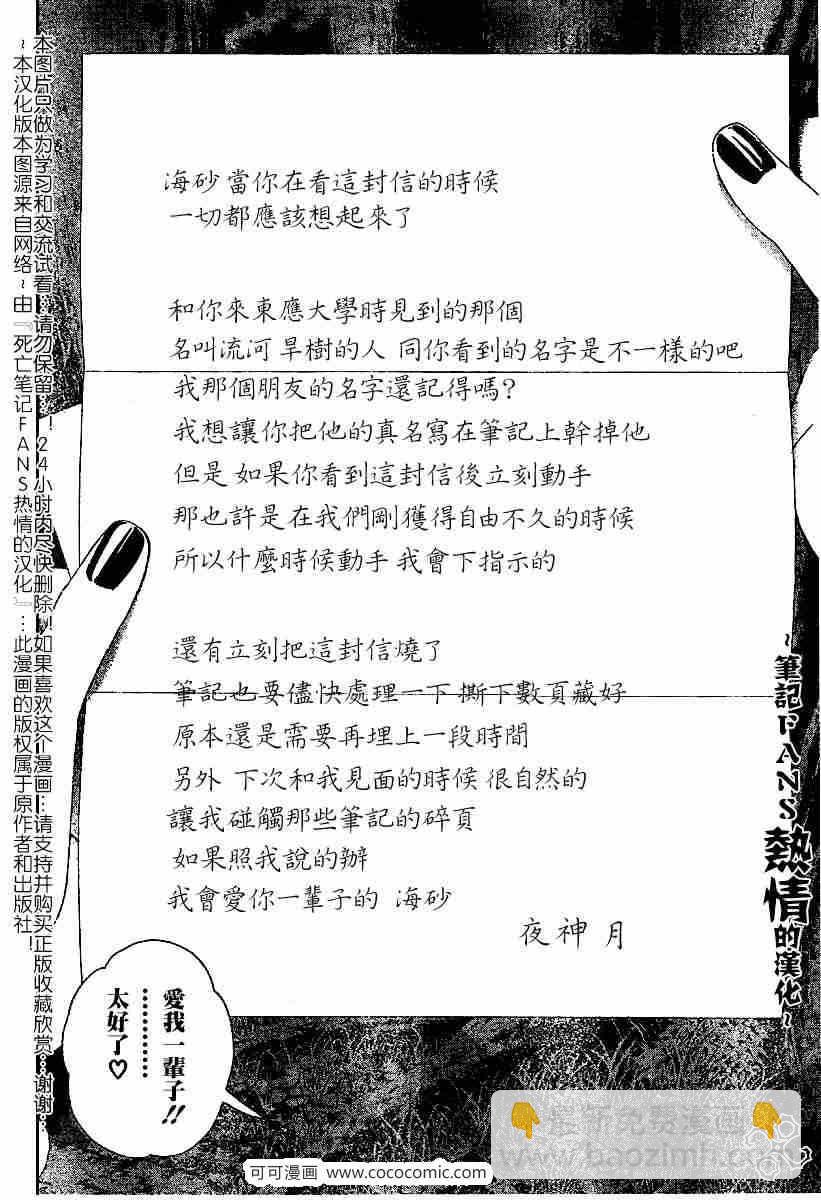 海砂 當你在看這封信的時候
一切都應該想起來了
和你來東應大學時見到的那個
名叫流河 旱樹的人 同你看到的名字是不一樣的吧
我那個朋友的名字還記得嗎?
我想讓你把他的真名寫在筆記上幹掉他
但是 如果你看到這封信後立刻動手
那也許是在我們剛獲得自由不久的時候
所以什麼時候動手 我會下指示的
還有立刻把這封信燒了
筆記也要儘快處理一下 撕下數頁藏好
原本還是需要再埋上一段時間
另外 下次和我見面的時候 很自然的
讓我碰觸那些筆記的碎頁
如果照我說的辦
我會愛你一輩子的 海砂
夜神 月
愛我一輩子!!
………
太好了♡
~筆記FANS熱情的漢化~
本图片只做为学习和交流试看…请勿保留…!24小时内尽快删除!!如果喜欢这个漫画…请支持并购买正版收藏欣赏…谢谢…
~本汉化版本图源来自网络~由『死亡笔记FANS热情的汉化』…此漫画的版权属于原作者和出版社!
可可漫画 www.cococomic.com
最新免费漫画
www.baozimh.com